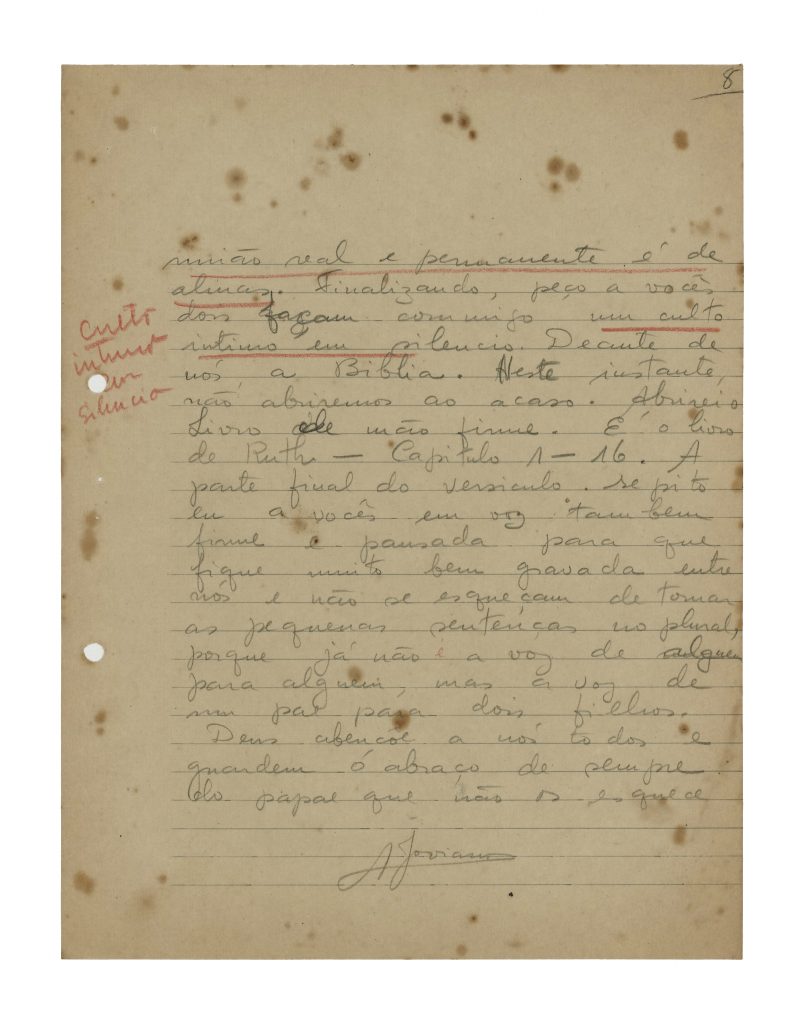 8
união real e permanente é de
almas. Finalizando, peço a vocês
dois façam commigo um culto
intimo em silencio. Deante de
nós, a Biblia. Neste instante,
não abriremos ao acaso. Abrirei o
Livro de mão firme. É o livro
de Ruth — Capitulo 1 — 16. A
parte final do versiculo. Repito
eu a vocês em voz tambem
firme e pausada para que
fique muito bem gravada entre
nós e não se esqueçam de tomar
as pequenas sentenças no plural,
porque já não é a voz de alguem
para alguem, mas a voz de
um pae para dois filhos.
Deus abençõe a nós todos e
guardem o abraço de sempre
do papae que não os esquece
A Joviano
Culto
intimo
em
silencio